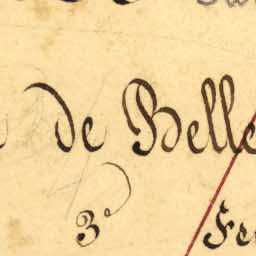 de Belle
3°
Fe